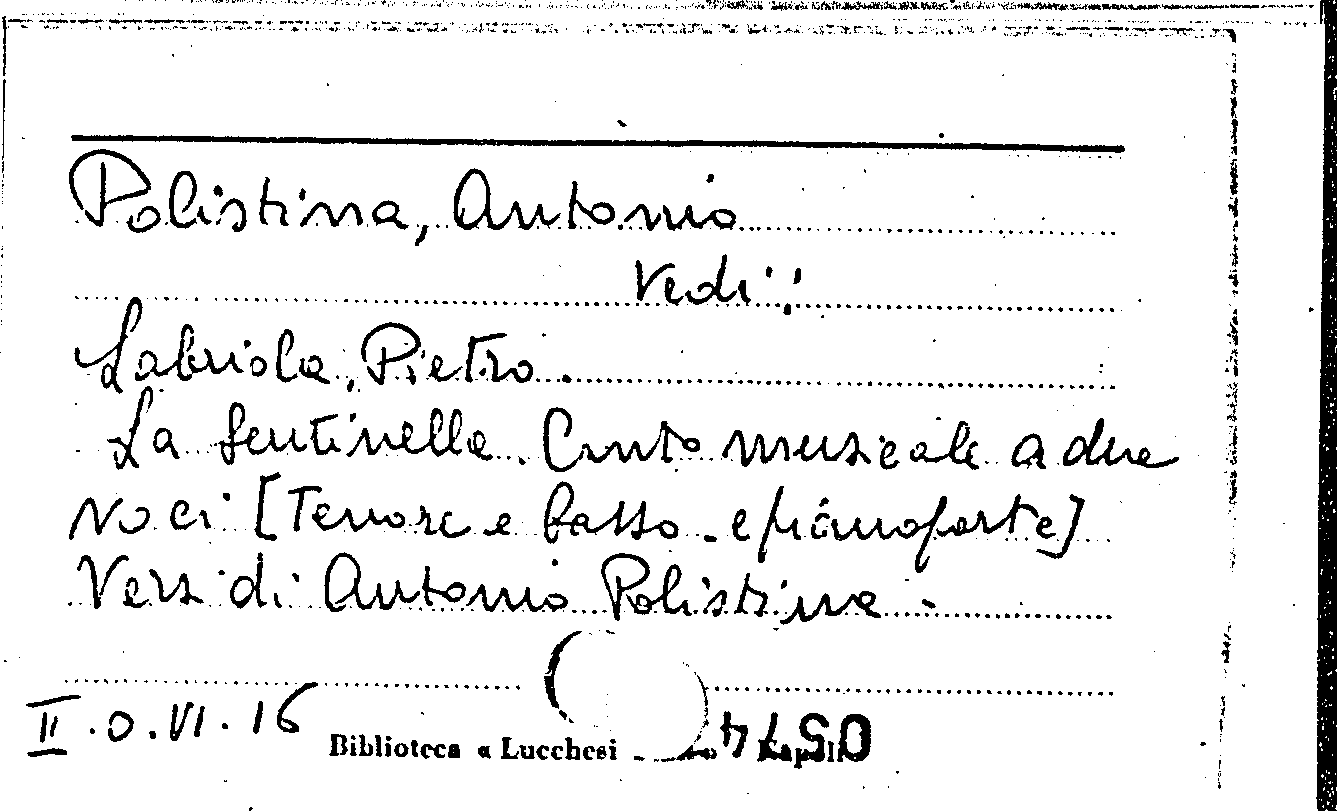 Polistina, Antonio
Vedi:
Labriola, Pietro.
La Sentinella. Canto musicale a due
voci [Tenore e basso - e pianoforte]
Versi di Antonio Polistina -
II.O.VI.16
Biblioteca « Lucchesi